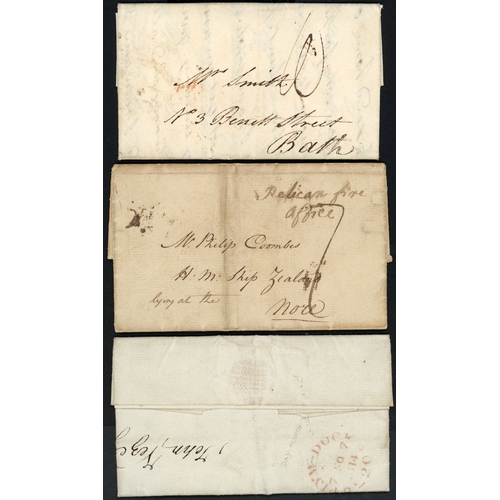 Mrs Smith
No 3 Bennett Street
Bath
Pelican fire
office
7
Mr Philip Coombes
H. M. Ship
lying at the
Nore
John